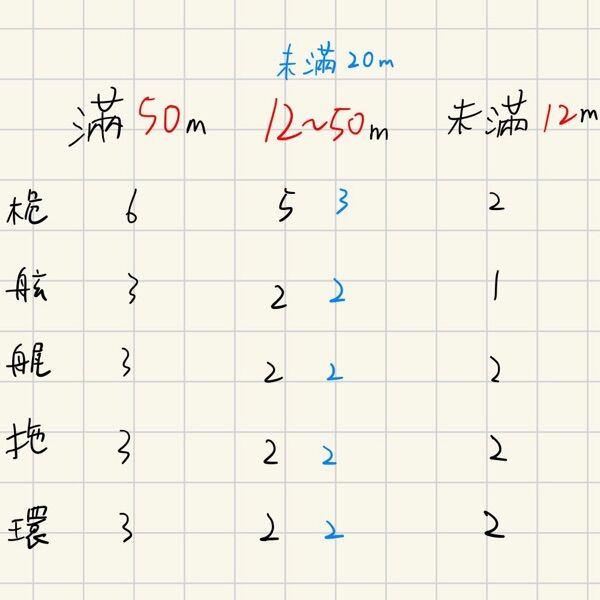 未滿20m
滿50m 12~50m 未滿12m
桅 6 5 3 2
舷 3 2 2 1
艉 3 2 2 2
拖 3 2 2 2
環 3 2 2 2